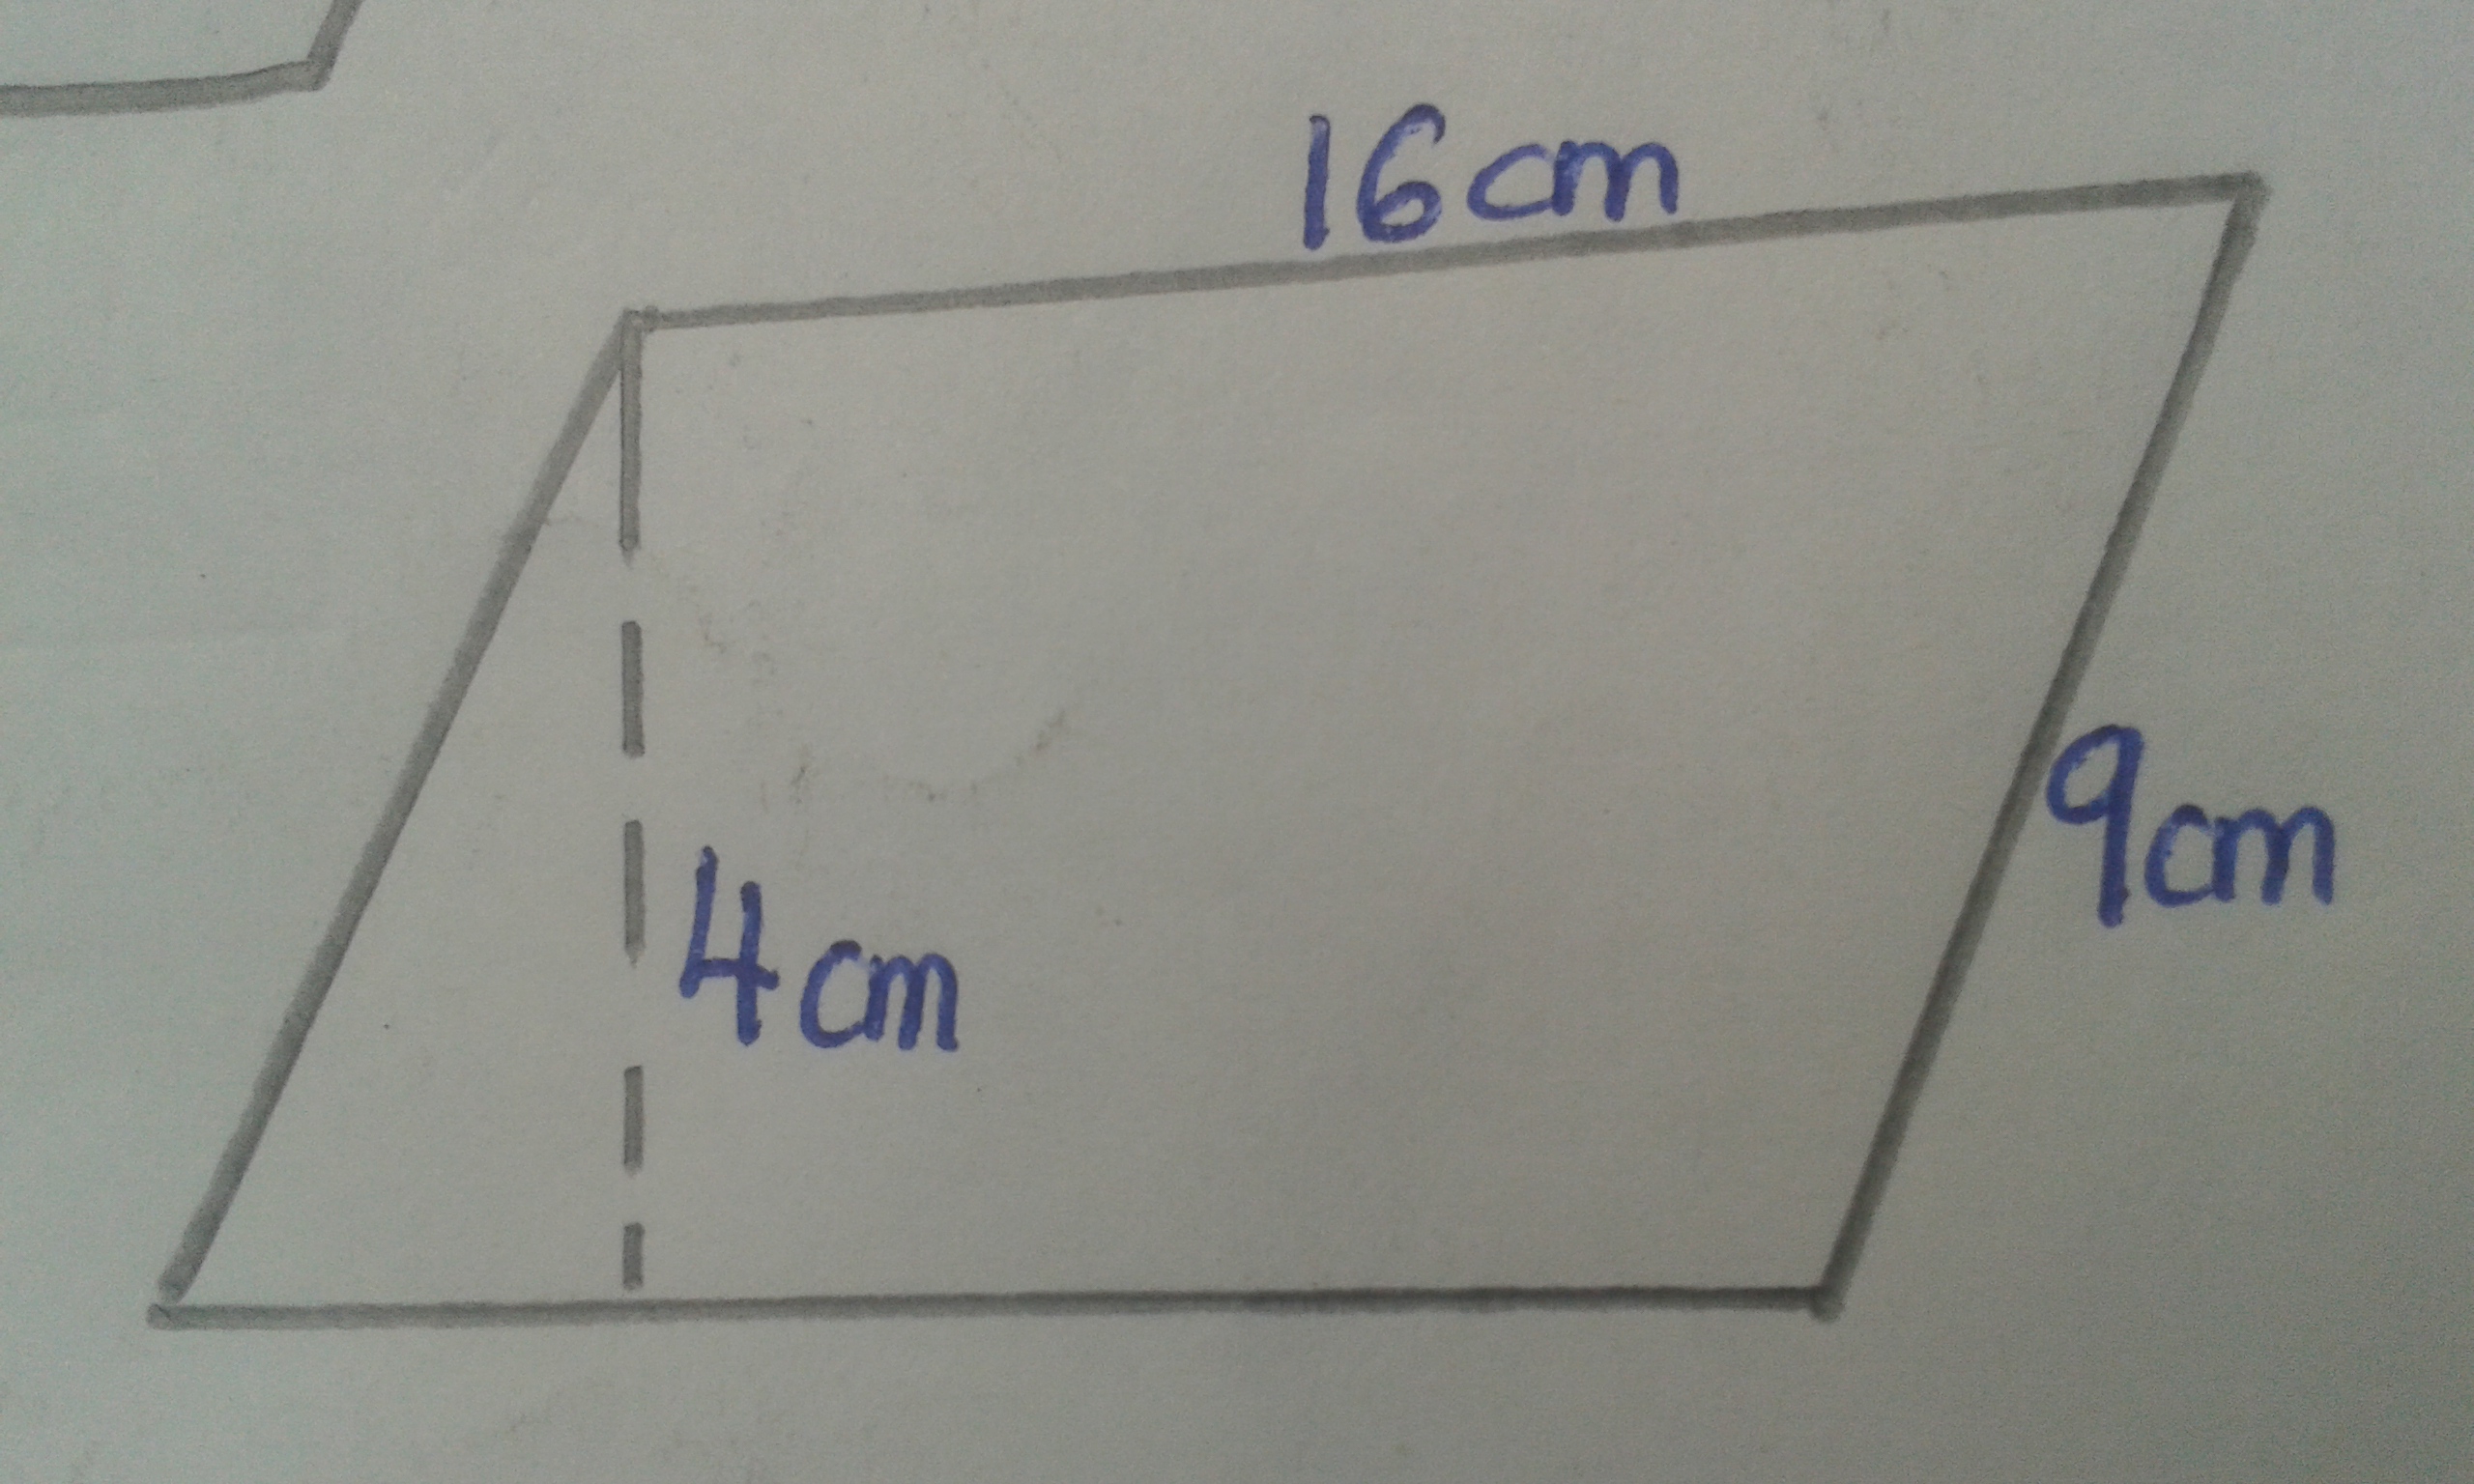 16cm
9cm
4cm